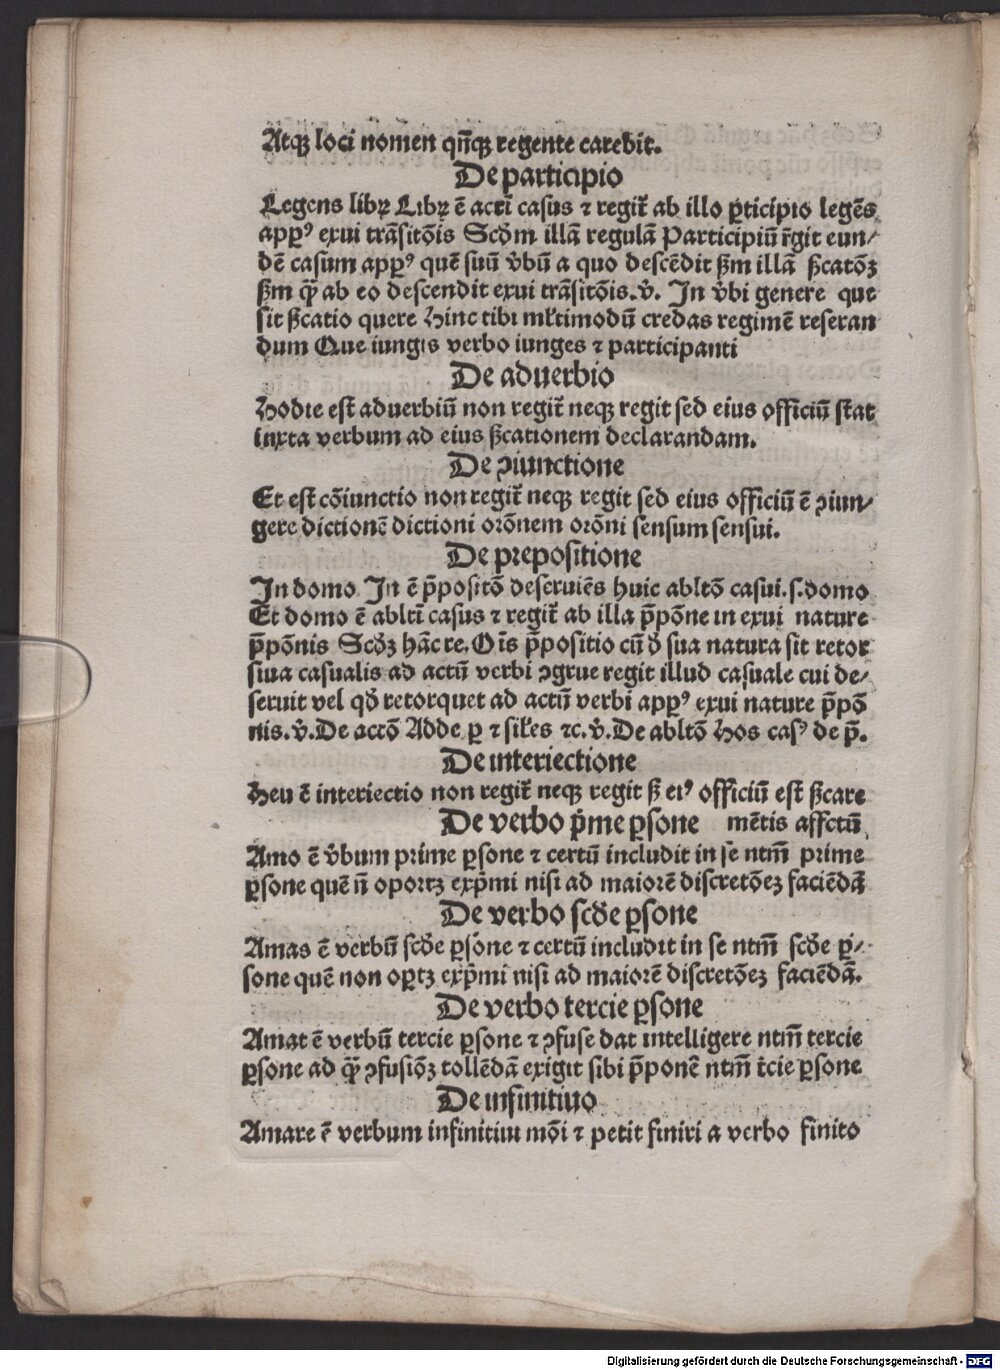 Atqꝫ loci nomen qn̄qꝫ regente carebit.
De participio
Legens librꝫ Librꝫ ē acti̅ casus ⁊ regit᷑ ab illo ꝑticipio legēs
apprꝰ exui trāsitōis Scd̓m illā regulā Participiū r̄git eun⸗
dē casum apprꝰ quē suū v̓bū a quo descēdit ẜm illā ẜcatōꝫ
ẜm qꝫ̄ ab eo descendit exui trāsitōis.v̓. In v̓bi genere que
sit ẜcatio quere Hinc tibi ml̓timodū credas regimē reseran
dum Que iungis verbo iunges ⁊ participanti
De aduerbio
Hodie est aduerbiū non regit᷑ neqꝫ regit sed eius officiū stat
iuxta verbum ad eius ẜcationem declarandam.
De ꝯiunctione
Et est cōiunctio non regit᷑ neqꝫ regit sed eius officiū ē ꝯiun⸗
gere dictionē dictioni orōnem orōni sensum sensui.
De prepositione
In domo In ē p̄positō deseruiēs huic abltō casui.s.domo
Et domo ē ablti̅ casus ⁊ regit᷑ ab illa p̄pōne in exui nature
p̄pōnis Scd̓ꝫ hāc re. Oīs p̄positio cū d̓ sua natura sit retor
siua casualis ad actū verbi ꝯgrue regit illud casuale cui de⸗
seruit vel qd̓ retorquet ad actū verbi apprꝰ exui nature p̄pō
nis.v̓.De actō Adde ꝑ ⁊ sil̓es ⁊c.v̓.De abltō Hos casꝰ de p̄.
De interiectione
Heu ē interiectio non regit᷑ neqꝫ regit ẜ eiꝰ officiū est ẜcare
De verbo p̓me ꝑsone mētis affctū
Amo ē v̓bum prime ꝑsone ⁊ certū includit in se ntm̄ prime
ꝑsone quē n̄ oportꝫ exp̓mi nisi ad maiorē discretōeꝫ faciēdā
De verbo scd̓e ꝑsone
Amas ē verbū scd̓e ꝑsone ⁊ certū includit in se ntm̄ scd̓e ꝑ⸗
sone quē non oꝑtꝫ exp̓mi nisi ad maiorē discretōeꝫ faciēdā.
De verbo tercie ꝑsone
Amat ē verbū tercie ꝑsone ⁊ ꝯfuse dat intelligere ntm̄ tercie
ꝑsone ad qꝫ̄ ꝯfusiōꝫ tollēdā exigit sibi p̄ponē ntm̄ t̓cie ꝑsone
De infinitiuo
Amare ē verbum infinitiui mōi ⁊ petit finiri a verbo finito
Digitalisierung gefördert durch die Deutsche Forschungsgemeinschaft - DFG